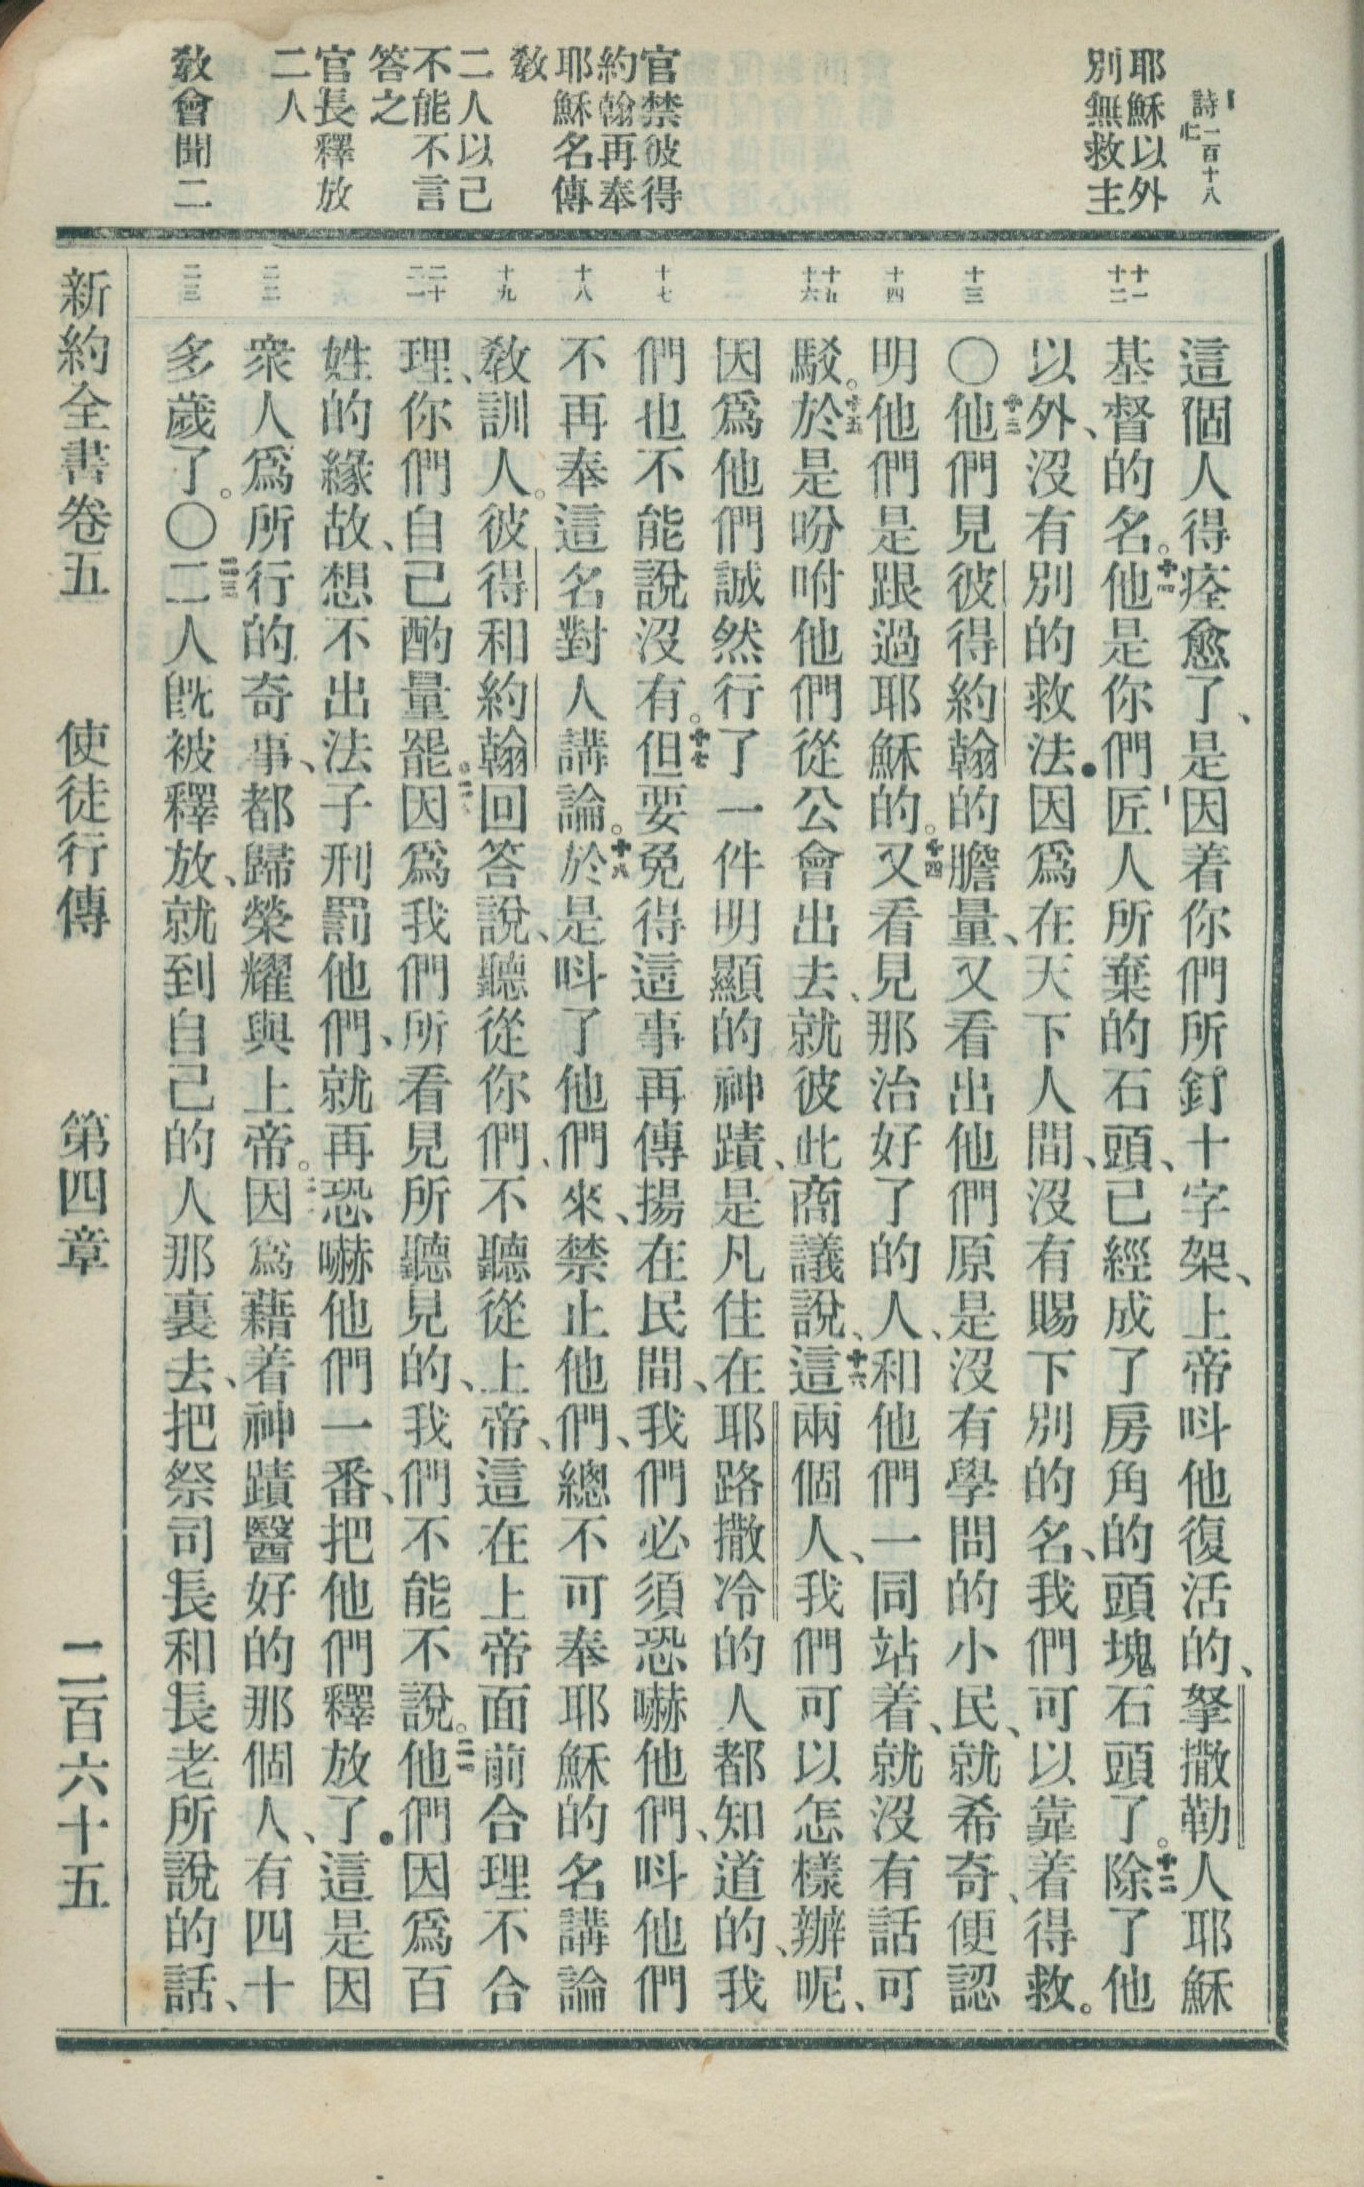 詩一百十八
耶穌以外
別無救主
官禁彼得
約翰再奉
耶穌名傳
敎
二人以己
不能不言
答之
官長釋放
二人
敎會聞二
十一
十二
十三
十四
十五
十六
十七
十八
十九
二十
二一
二二
二三
這個人得痊愈了、是因着你們所釘十字架、上帝呌他復活的、拏撒勒人耶穌
基督的名。十一他是你們匠人所棄的石頭、已經成了房角的頭塊石頭了。十二除了他
以外、沒有別的救法●因爲在天下人間、沒有賜下別的名、我們可以靠着得救。
〇十三他們見彼得約翰的膽量、又看出他們原是沒有學問的小民、就希奇、便認
明他們是跟過耶穌的。十四又看見那治好了的人、和他們一同站着、就沒有話可
駁。十五於是吩咐他們從公會出去、就彼此商議說、十六這兩個人、我們可以怎樣辦呢、
因爲他們誠然行了一件明顯的神蹟、是凡住在耶路撒冷的人都知道的、我
們也不能說沒有。十七但要免得這事再傳揚在民間、我們必須恐嚇他們、呌他們
不再奉這名對人講論。十八於是呌了他們來、禁止他們、總不可奉耶穌的名講論
敎訓人。彼得和約翰回答說、聽從你們、不聽從上帝、這在上帝面前合理不合
理、你們自己酌量罷。二十因爲我們所看見所聽見的、我們不能不說。二一他們因爲百
姓的緣故、想不出法子刑罰他們、就再恐嚇他們一番、把他們釋放了●這是因
衆人爲所行的奇事、都歸榮耀與上帝。二二因爲藉着神蹟醫好的那個人、有四十
多歲了。〇二三二人旣被釋放、就到自己的人那裏去、把祭司長和長老所說的話、
新約全書卷五 使徒行傳 第四章 二百六十五